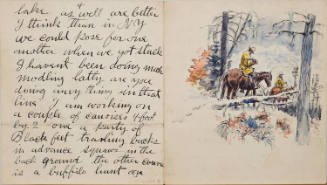 lake as well are better
I think than in N.Y.
we could pose for one
another when we got stuck
I havent been doing much
modling latly are you
doing any thing in that
line I am working on
a couple of canvases 4 foot
by 2 one a party of
Black feet trading bucks
in advance squaws in the
back ground the other
is a buffilo hunt on